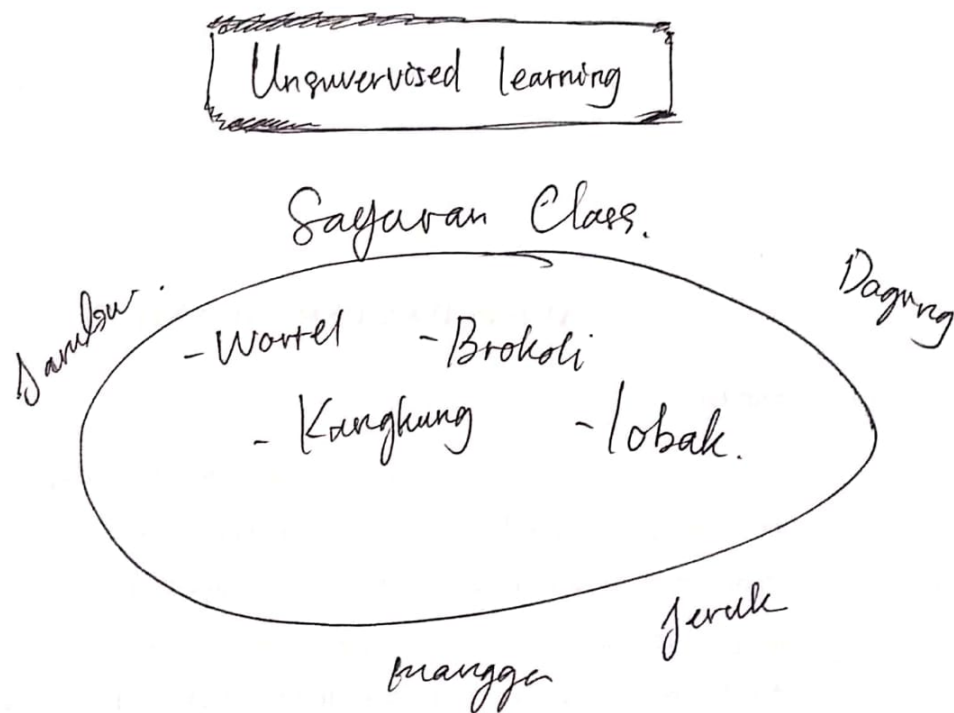 Unsuvervised learning
Sayuran Class.
Dagung
- Wortel - Brokoli
- Kangkung - lobak.
Jeruk
mangga